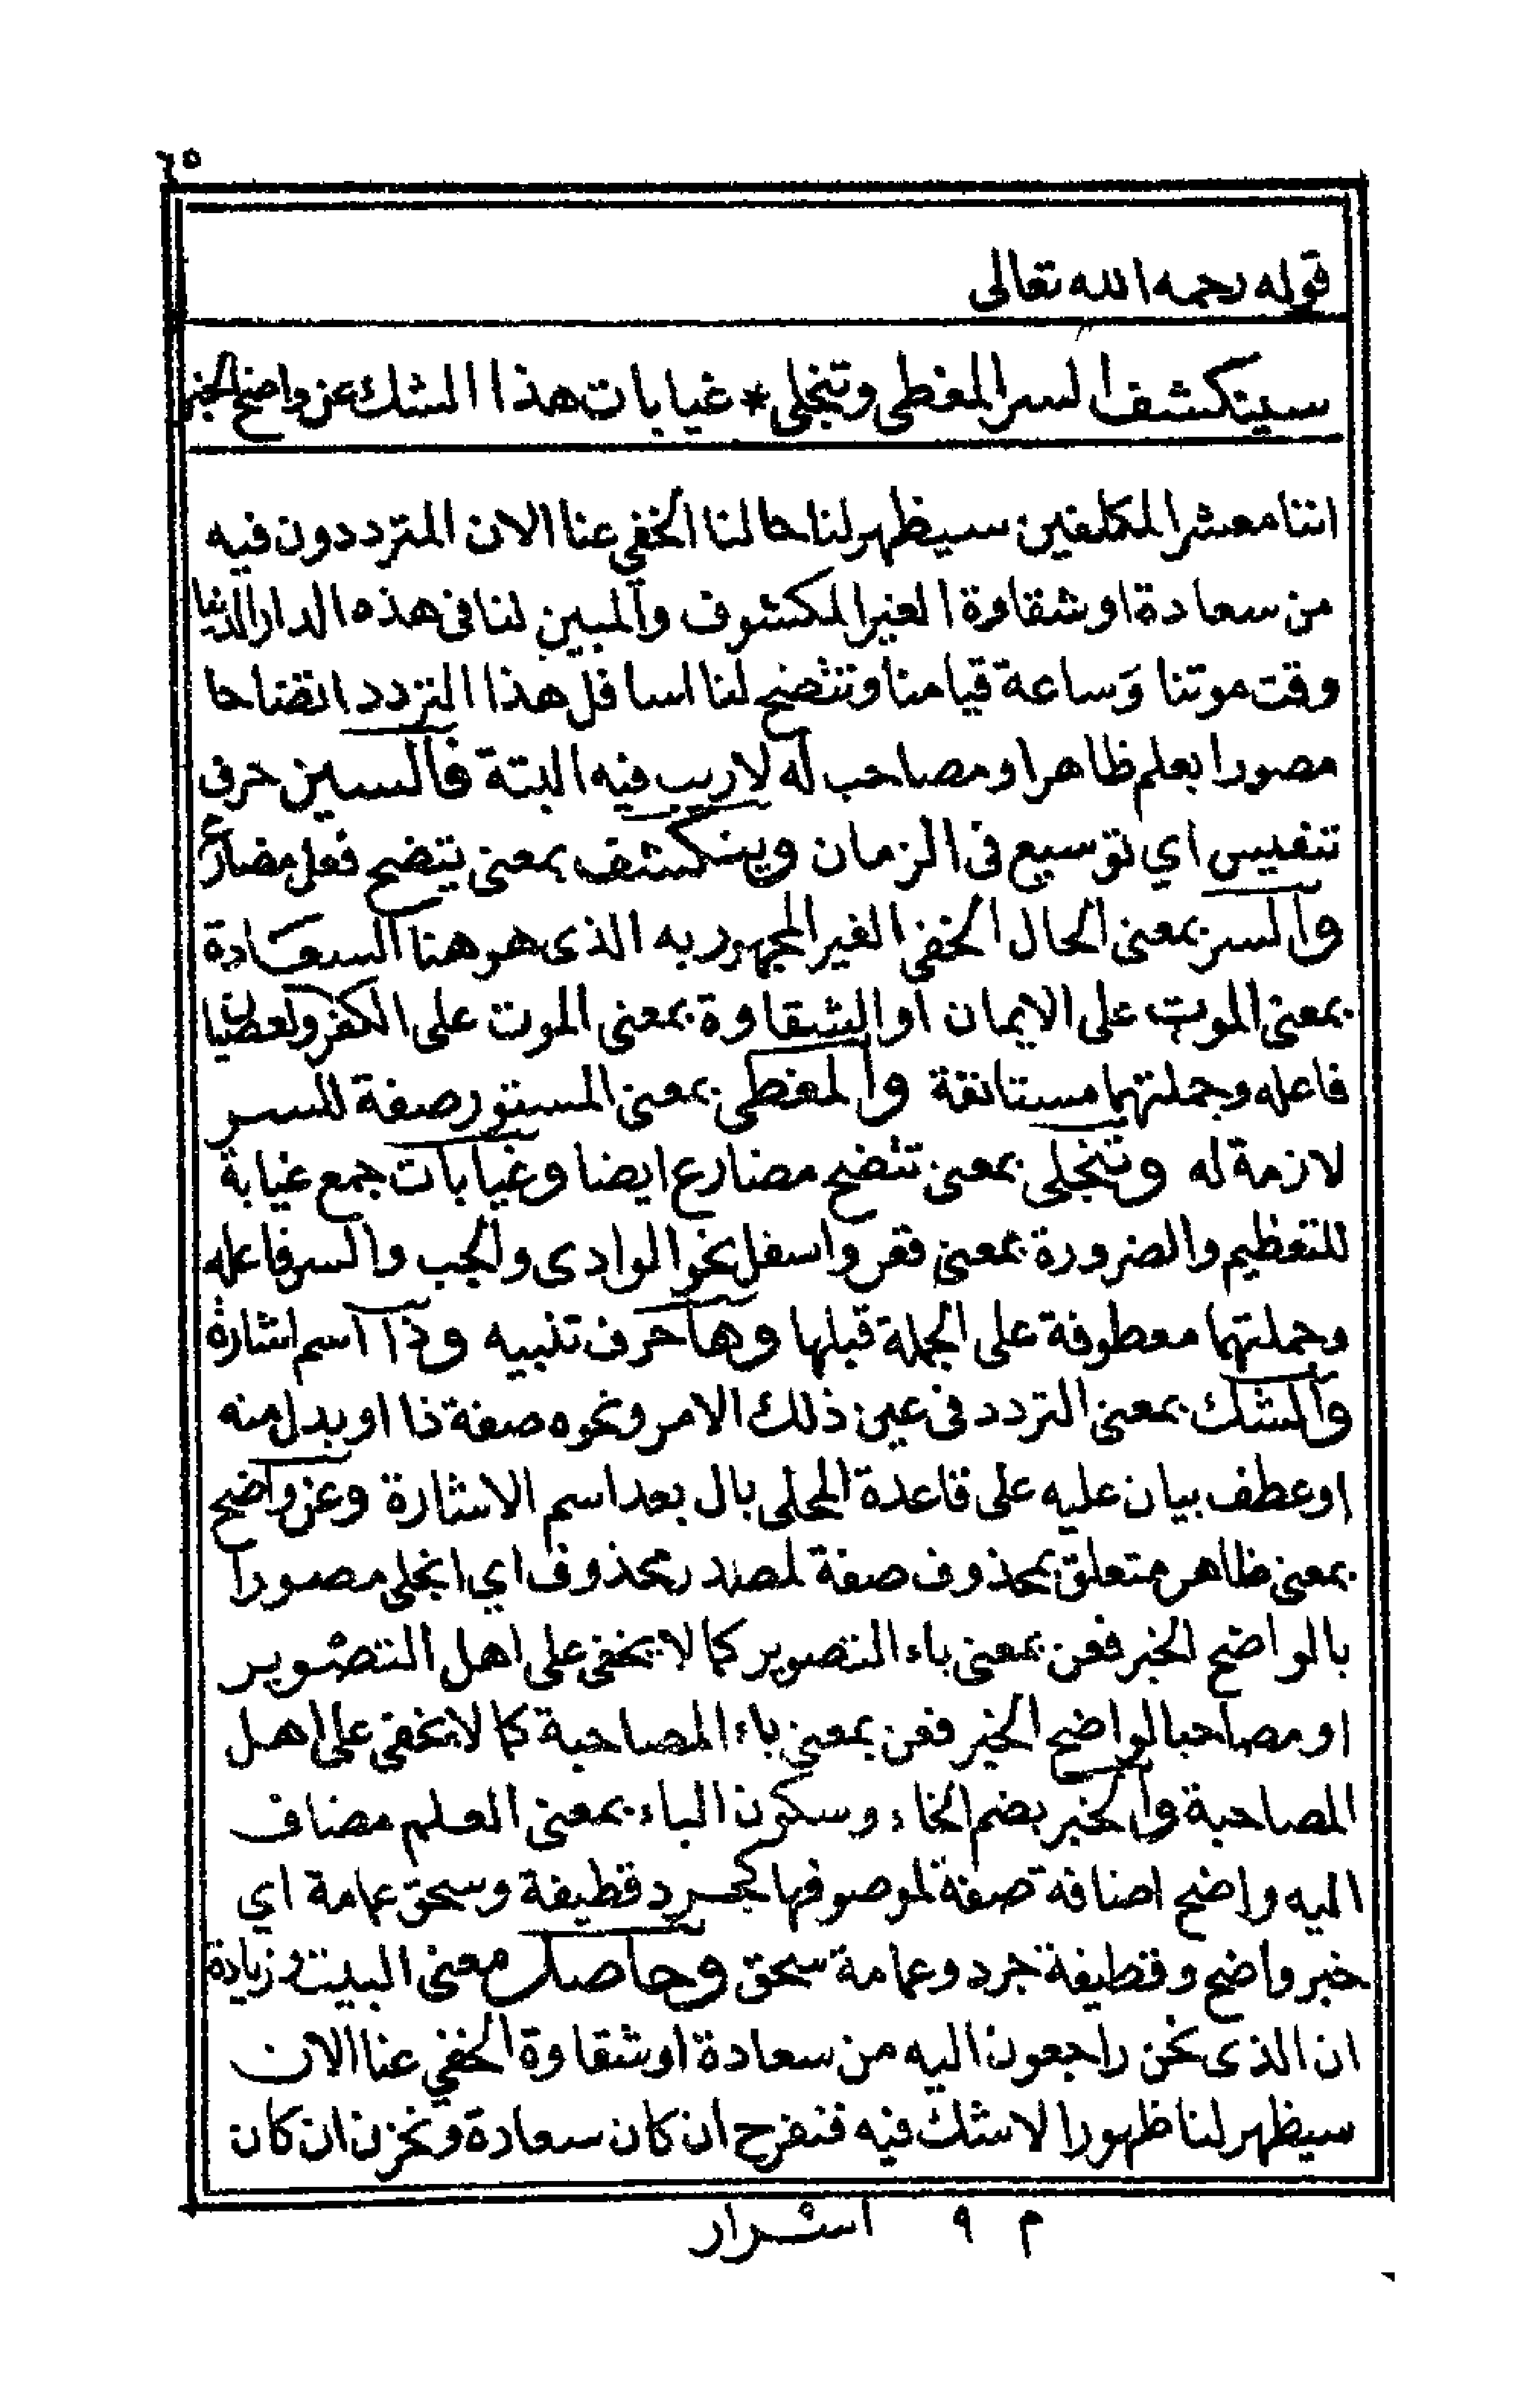 ٦٥
قوله رحمه الله تعالى
سينكشف السر المغطى وتنجلى * غيابات هذا الشك عن واضح الخبر
اننا معشر المكلفين سيظهر لنا حالنا الخفي عنا الان المترددون فيه
من سعادة او شقاوة الغير المكشوف والمبين لنا فى هذه الدار الدنيا
وقت موتنا وساعة قيامنا وتتضح لنا اسافل هذا التردد اتضاحا
مصورا بعلم ظاهر او مصاحب له لا ريب فيه البتة فالسين حرف
تنفيس اي توسيع فى الزمان وينكشف بمعنى يتضح فعل مضارع
والسر بمعنى الحال الخفي الغير المجهور به الذى هو هنا السعادة
بمعنى الموت على الايمان او الشقاوة بمعنى الموت على الكفر والعصيان
فاعله وجملتهما مستانفة والمغطى بمعنى المستور صفة للسر
لازمة له وتنجلى بمعنى تتضح مضارع ايضا وغيابات جمع غيابة
للتعظيم والضرورة بمعنى قعر واسفل نحو الوادى والجب والسر فاعله
وجملتهما معطوفة على الجملة قبلها وها حرف تنبيه وذا اسم اشارة
والشك بمعنى التردد فى عين ذلك الامر ونحوه صفة ذا او بدل منه
او عطف بيان عليه على قاعدة المحلى بال بعد اسم الاشارة وعن واضح
بمعنى ظاهر متعلق بمحذوف صفة لمصدر محذوف اي انجلى مصورا
بالواضح الخبر فعن بمعنى باء التصوير كما لا يخفى على اهل التصوير
او مصاحبا لواضح الخبر فعن بمعنى باء المصاحبة كما لا يخفى على اهل
المصاحبة والخبر بضم الخاء وسكون الباء بمعنى العلم مضاف
اليه واضح اضافة صفة لموصوفها كجرد قطيفة وسحق عمامة اي
خبر واضح وقطيفة جرد وعمامة سحق وحاصل معنى البيت وزيادة
ان الذى نحن راجعون اليه من سعادة او شقاوة الخفي عنا الان
سيظهر لنا ظهورا لا شك فيه فنفرح ان كان سعادة ونحزن ان كان
م ٩ اسرار